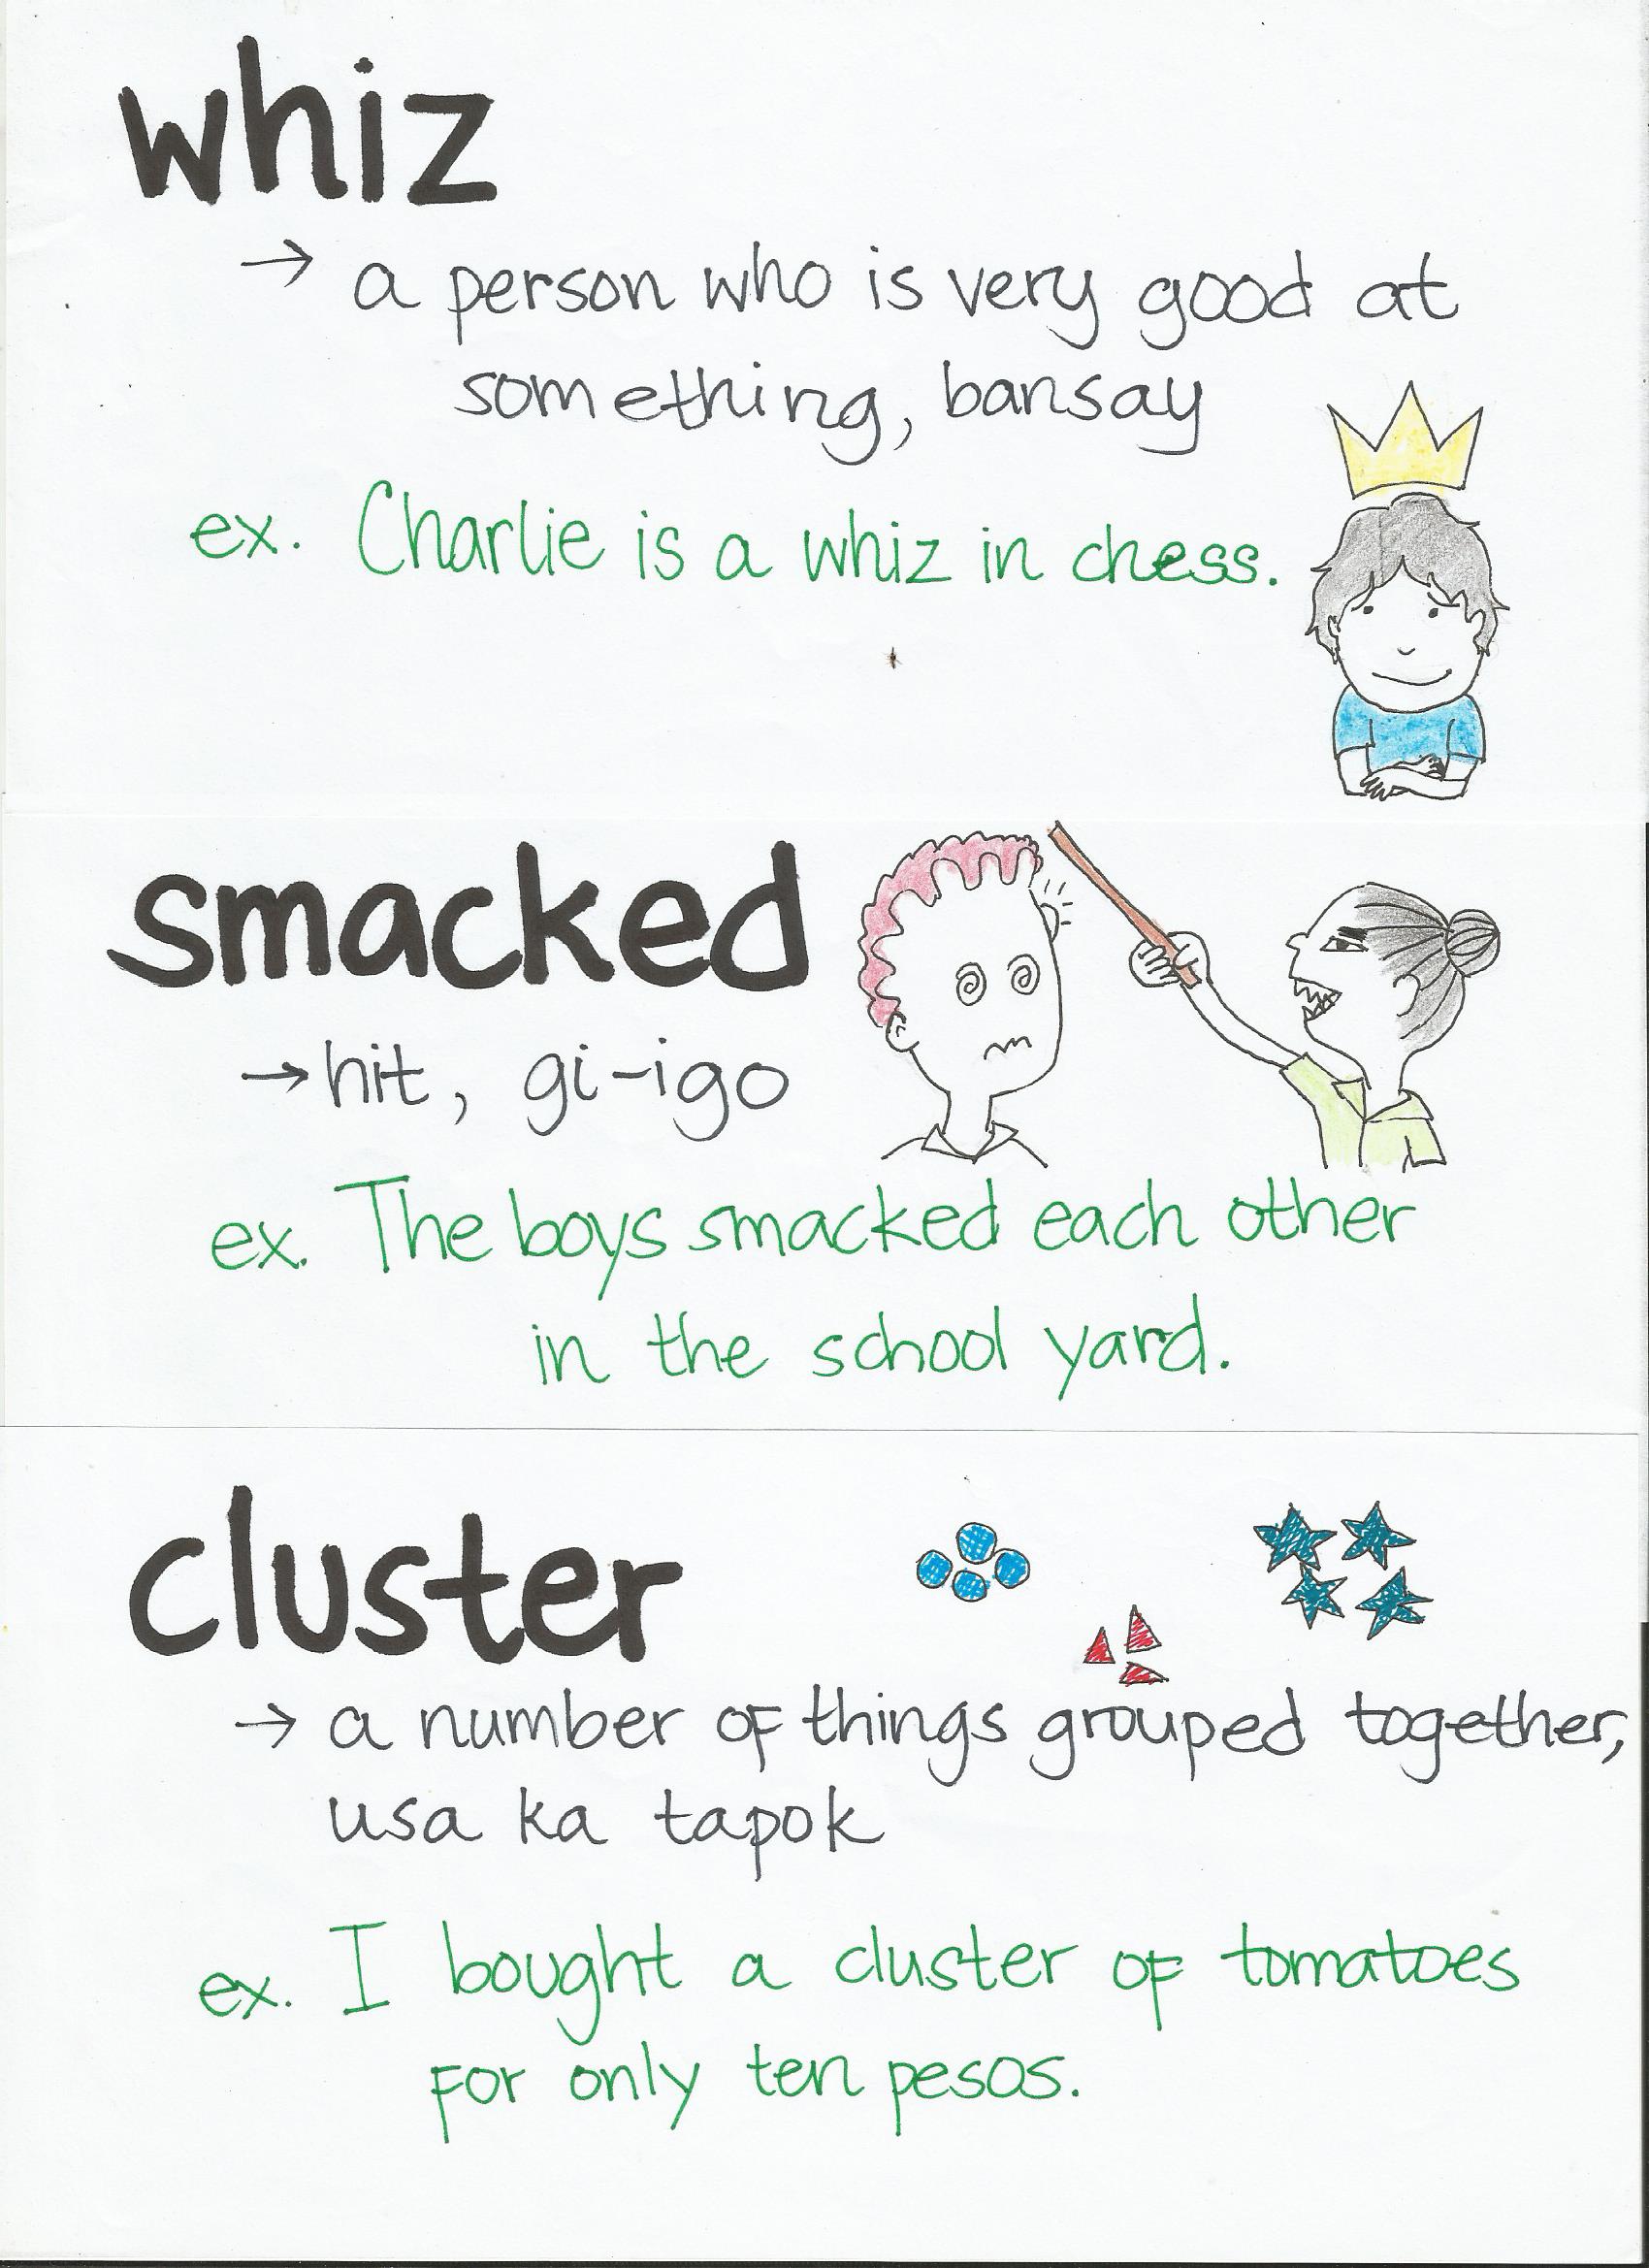 whiz
→ a person who is very good at
something, bansay
ex. Charlie is a whiz in chess.
smacked
→ hit, gi-igo
ex. The boys smacked each other
in the school yard.
cluster
→ a number of things grouped together,
usa ka tapok
ex. I bought a cluster of tomatoes
for only ten pesos.